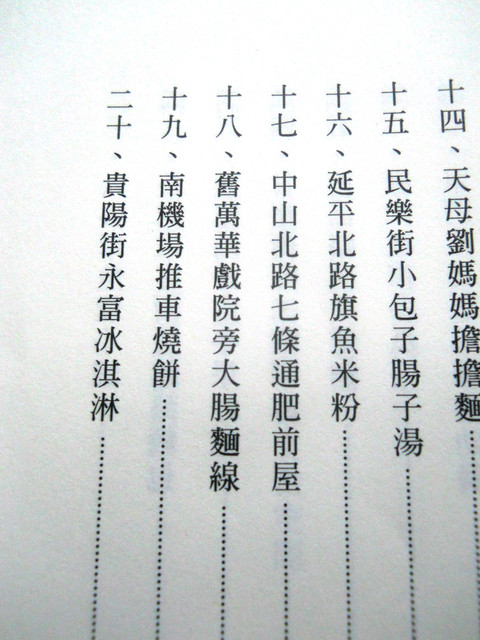 十四、天母劉媽媽擔擔麵
十五、民樂街小包子腸子湯
十六、延平北路旗魚米粉
十七、中山北路七條通肥前屋
十八、舊萬華戲院旁大腸麵線
十九、南機場推車燒餅
二十、貴陽街永富冰淇淋